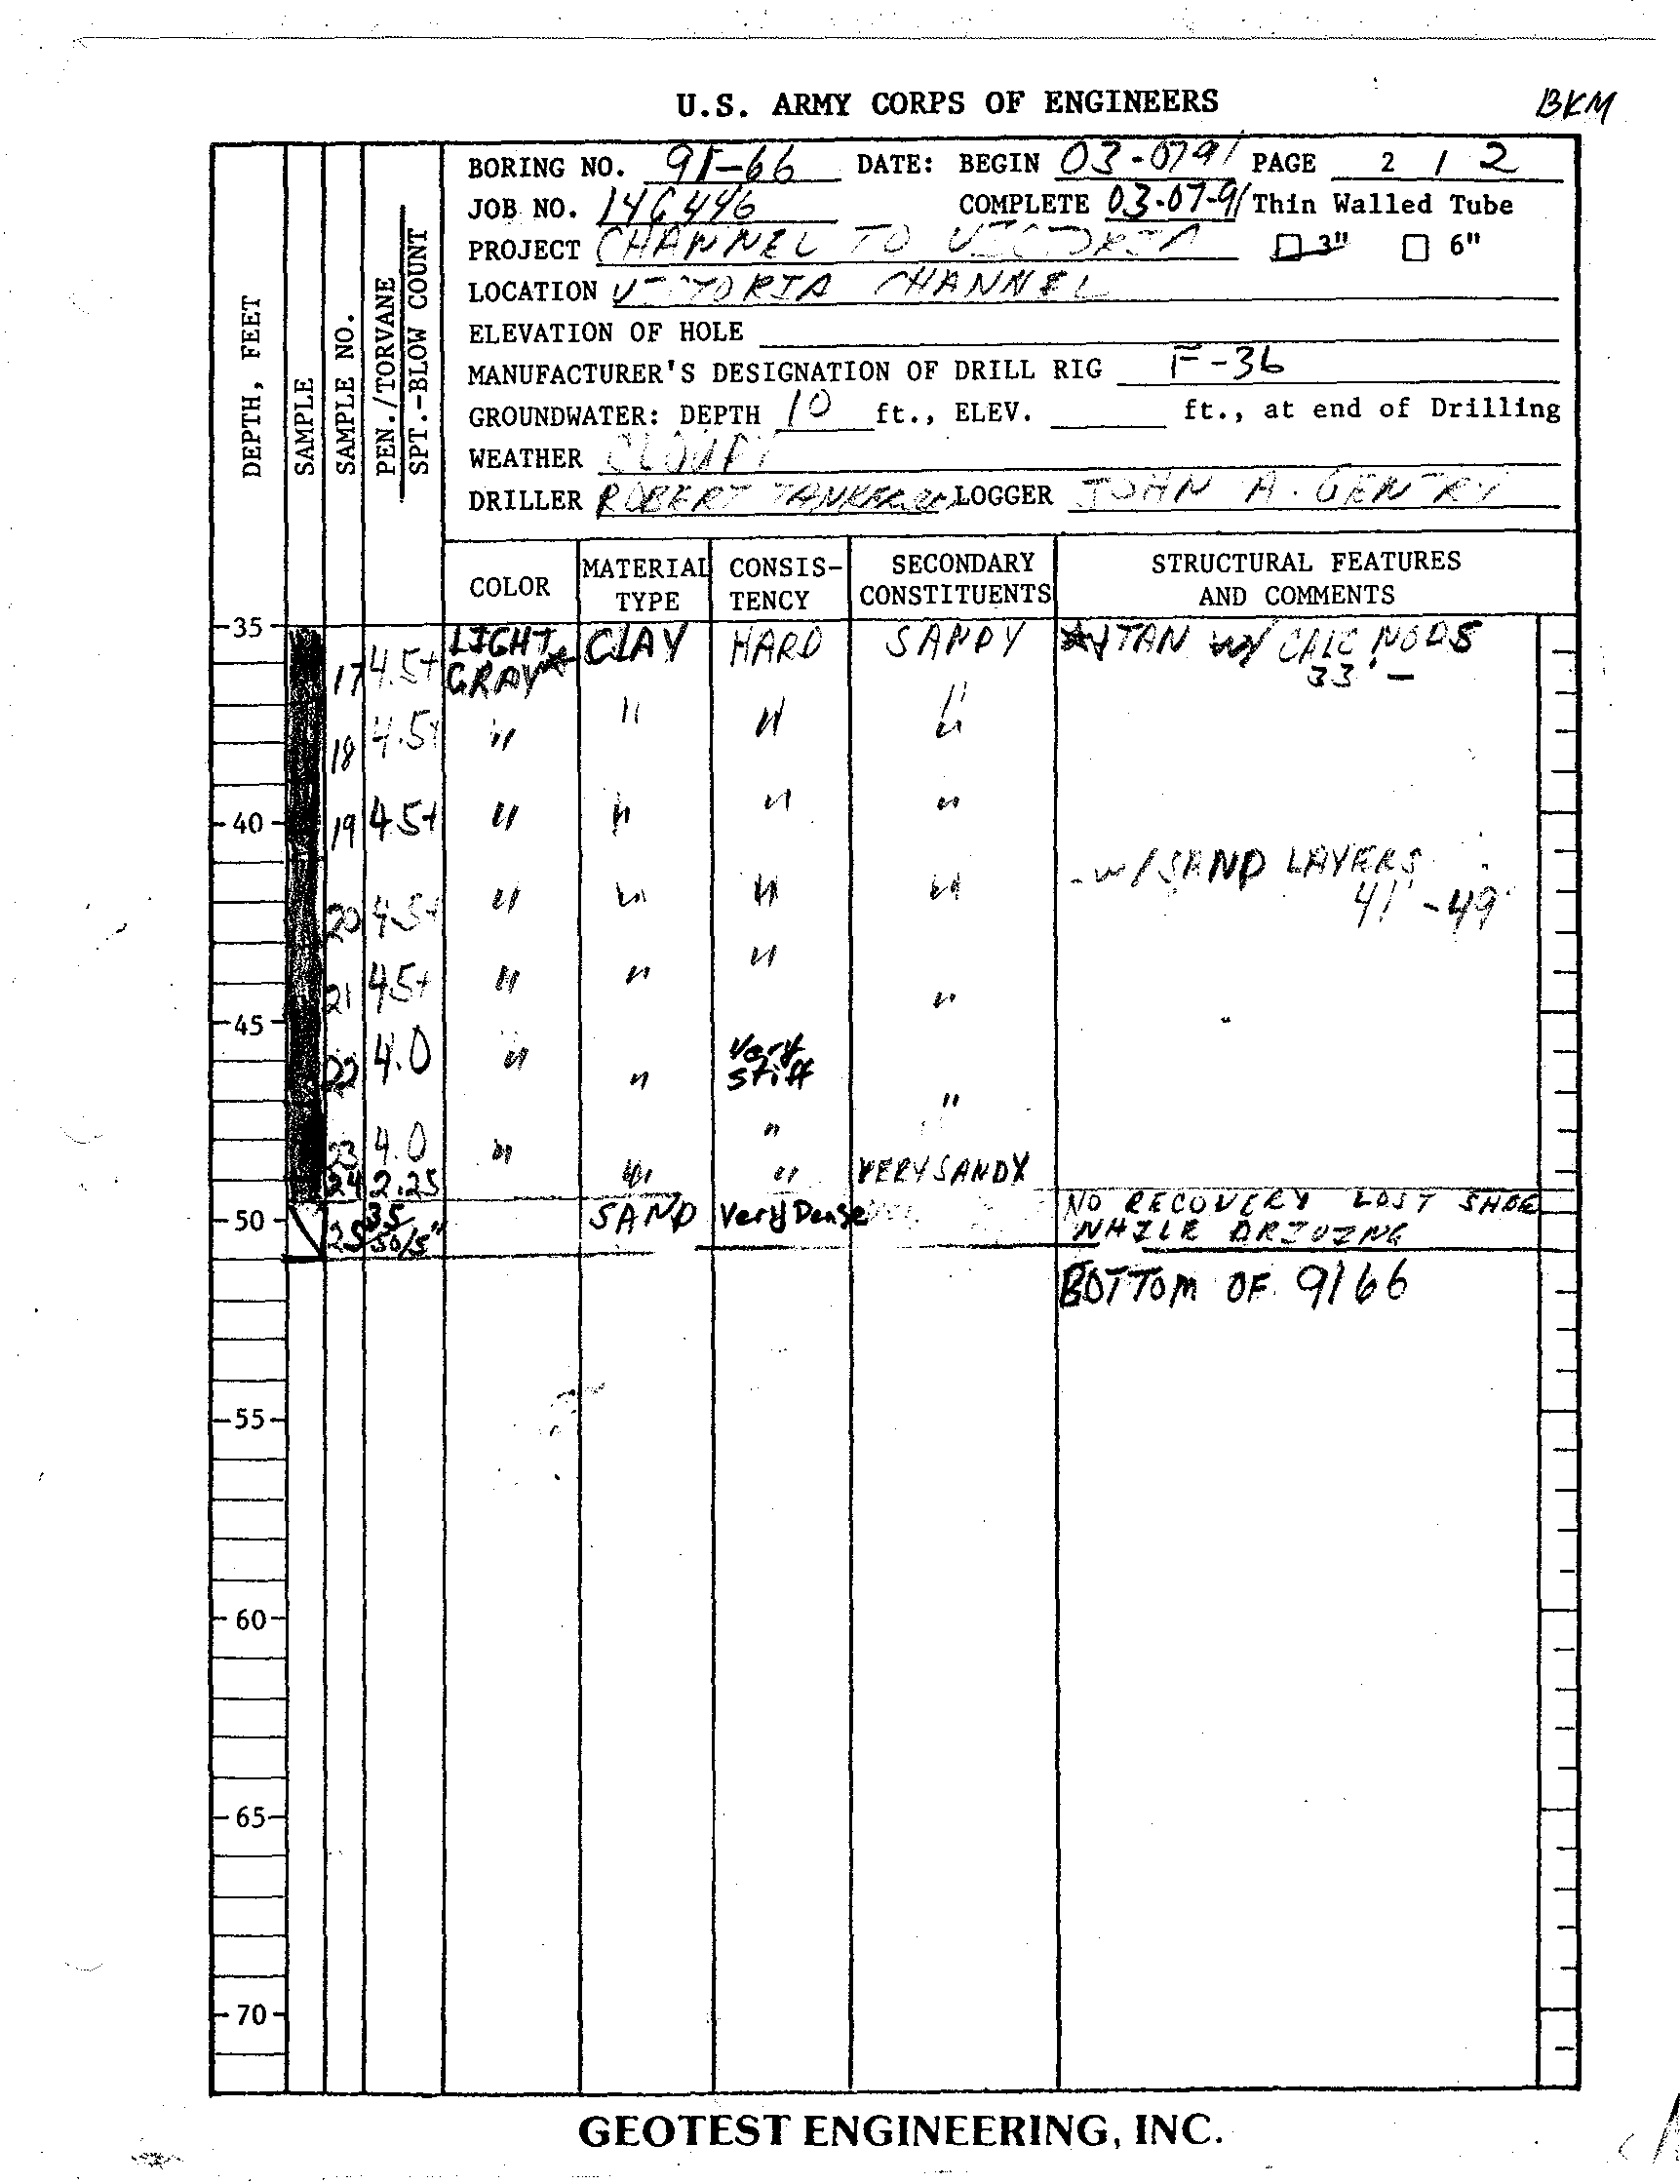 U.S. ARMY CORPS OF ENGINEERS
BKM
BORING NO. 91-66 DATE: BEGIN 03-0791 PAGE 2 / 2
JOB NO. 14G446 COMPLETE 03-07-91 Thin Walled Tube
PROJECT CHANNEL TO VICTORIA 3" 6"
LOCATION VICTORIA CHANNEL
ELEVATION OF HOLE
MANUFACTURER'S DESIGNATION OF DRILL RIG F-36
GROUNDWATER: DEPTH 10 ft., ELEV. ft., at end of Drilling
WEATHER CLOUDY
DRILLER ROBERT LOGGER JOHN A. GENTRY
DEPTH, FEET
SAMPLE
SAMPLE NO.
PEN./TORVANE
SPT.-BLOW COUNT
COLOR MATERIAL TYPE CONSIS-TENCY SECONDARY CONSTITUENTS STRUCTURAL FEATURES AND COMMENTS
35 17 4.5+ LIGHT GRAY* CLAY HARD SANDY *&TAN w/ CALC NODS
33' -
18 4.5+ " " " "
"
40 19 4.5+ " " " "
20 4.5+ " " " " -w/ SAND LAYERS
41' -49'
21 4.5+ " " " "
45
22 4.0 " " Very stiff "
23 4.0 " "
24 2.25 " " VERY SANDY
50 25 35 50/5" SAND Very Dense NO RECOVERY LOST SHOE
WHILE DRIVING
BOTTOM OF 9166
55
60
65
70
GEOTEST ENGINEERING, INC.